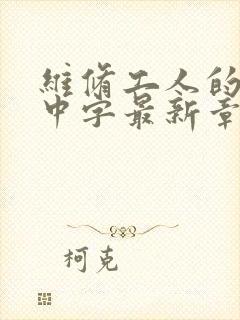 維脩工人的
中字最新章
柯克